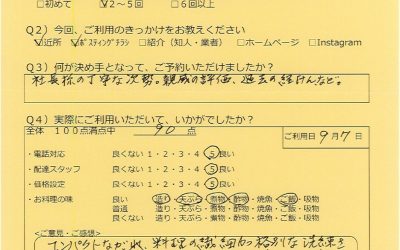 □初めて ☑2〜5回 □6回以上
Q2）今回、ご利用のきっかけをお教えください
☑近所 ☑ポスティングチラシ □紹介（知人・業者） □ホームページ □Instagram
Q3）何が決め手となって、ご予約いただけましたか？
社長様の丁寧な姿勢。親戚の評価、過去の経けんなど。
Q4）実際にご利用いただいて、いかがでしたか？
全体 100点満点中 90 点
ご利用日 9月7日
・電話対応 良くない 1・2・3・4 ⑤良い
・配達スタッフ 良くない 1・2・3・4 ⑤良い
・価格設定 良くない 1・2・3・4 ⑤良い
・お料理の味 良い 造り・天ぷら・煮物・酢物・焼魚・ご飯・吸物
普通 造り・天ぷら・煮物・酢物・焼魚・ご飯・吸物
良くない 造り・天ぷら・煮物・酢物・焼魚・ご飯・吸物
＜ご意見・ご感想＞
コンパクトながれ、料理の繊細かつ格別な洗練さ